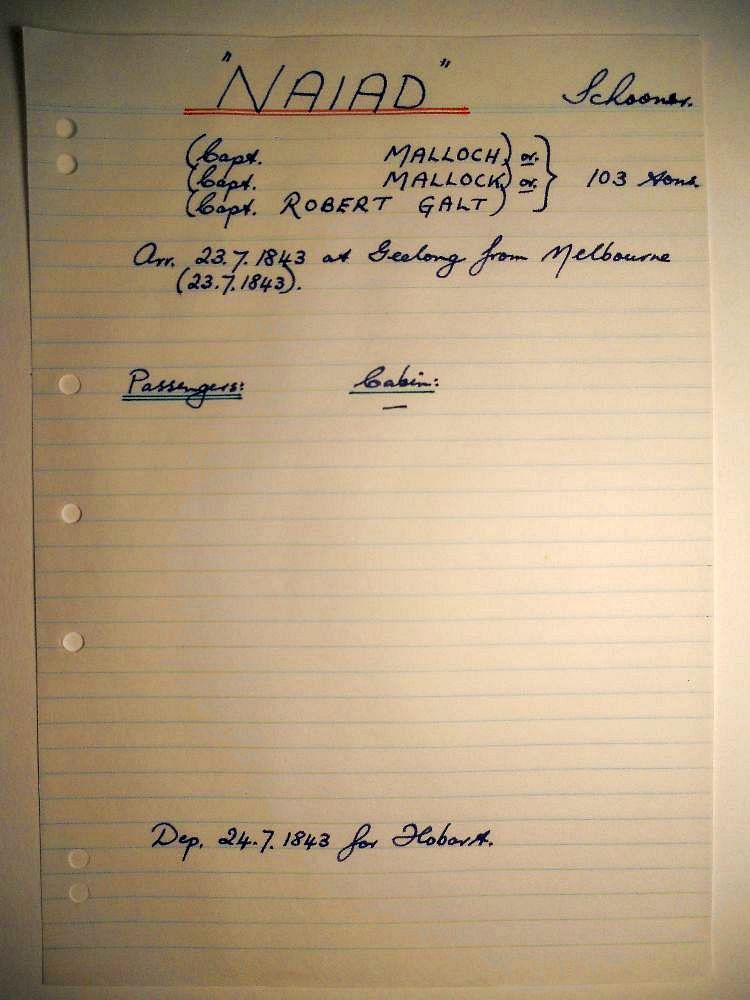 "NAIAD" Schooner.
(Capt. MALLOCH) or.
(Capt. MALLOCK) or. } 103 tons.
(Capt. ROBERT GALT)
Arr. 23.7.1843 at Geelong from Melbourne
(23.7.1843).
Passengers: Cabin:
—
Dep. 24.7.1843 for Hobart.